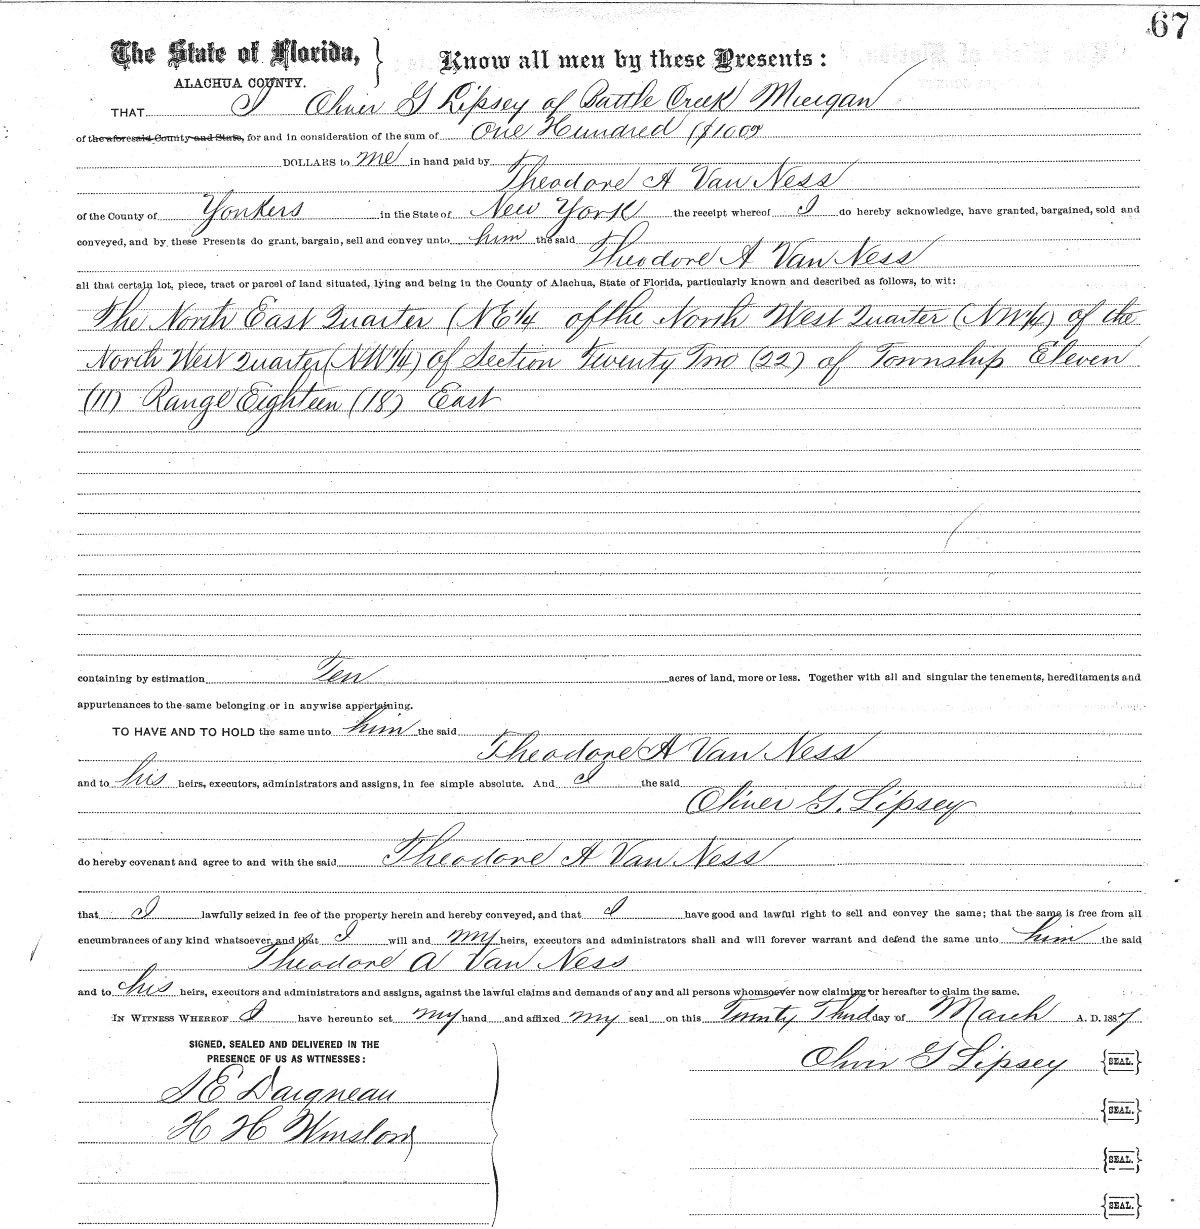 67
The State of Florida,
ALACHUA COUNTY.
Know all men by these Presents:
THAT I Oliver G Lipsey of Battle Creek Micigan
of the aforesaid County and State, for and in consideration of the sum of One Hundred ($100
DOLLARS to me in hand paid by
Theodore A Van Ness
of the County of Yonkers in the State of New York the receipt whereof I do hereby acknowledge, have granted, bargained, sold and
conveyed, and by these Presents do grant, bargain, sell and convey unto him the said
Theodore A Van Ness
all that certain lot, piece, tract or parcel of land situated, lying and being in the County of Alachua, State of Florida, particularly known and described as follows, to wit:
The North East Quarter (NE 1/4 of the North West Quarter (NW 1/4) of the
North West Quarter (NW 1/4) of Section Twenty Two (22) of Township Eleven
(11) Range Eighteen (18) East
containing by estimation Ten acres of land, more or less. Together with all and singular the tenements, hereditaments and
appurtenances to the same belonging or in anywise appertaining.
TO HAVE AND TO HOLD the same unto him the said
Theodore A Van Ness
and to his heirs, executors, administrators and assigns, in fee simple absolute. And I the said
Oliver G. Lipsey
do hereby covenant and agree to and with the said Theodore A Van Ness
that I lawfully seized in fee of the property herein and hereby conveyed, and that I have good and lawful right to sell and convey the same; that the same is free from all
encumbrances of any kind whatsoever, and that I will and my heirs, executors and administrators shall and will forever warrant and defend the same unto him the said
Theodore A Van Ness
and to his heirs, executors and administrators and assigns, against the lawful claims and demands of any and all persons whomsoever now claiming or hereafter to claim the same.
IN WITNESS WHEREOF I have hereunto set my hand and affixed my seal on this Twenty Third day of March A. D. 1887
SIGNED, SEALED AND DELIVERED IN THE
PRESENCE OF US AS WITNESSES:
Oliver G Lipsey {SEAL.}
S E Daigneau
{SEAL.}
H H Winslow
{SEAL.}
{SEAL.}